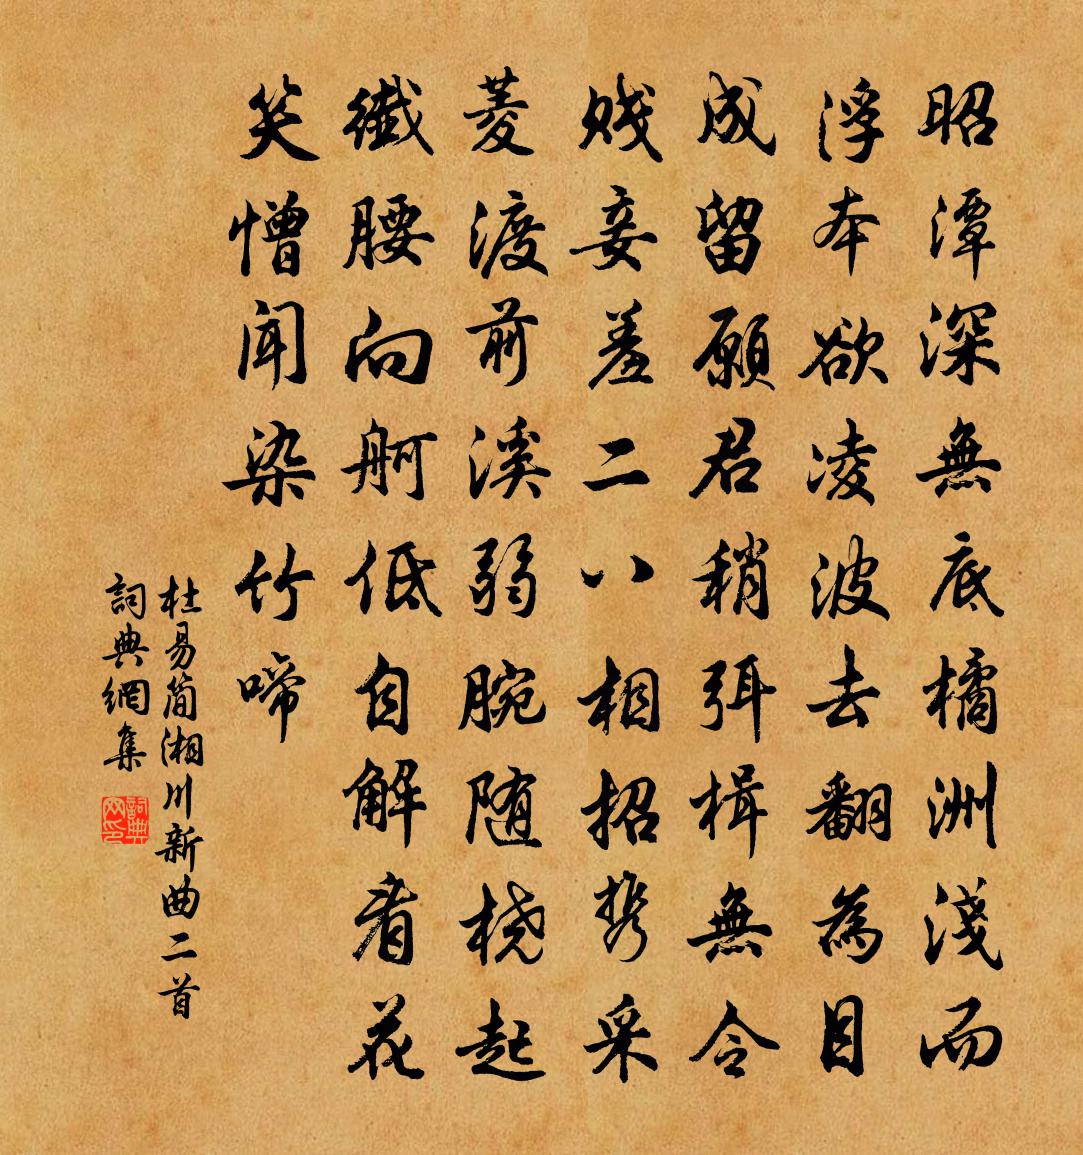 昭潭深無底橘洲淺而
浮本欲凌波去翻為目
成留願君稍弭楫無令
贱妾羞二八相招携采
菱渡前溪弱腕随桡起
纖腰向舸低自解看花
笑憎聞染竹啼
杜易简湘川新曲二首
詞典網集
詞典网印